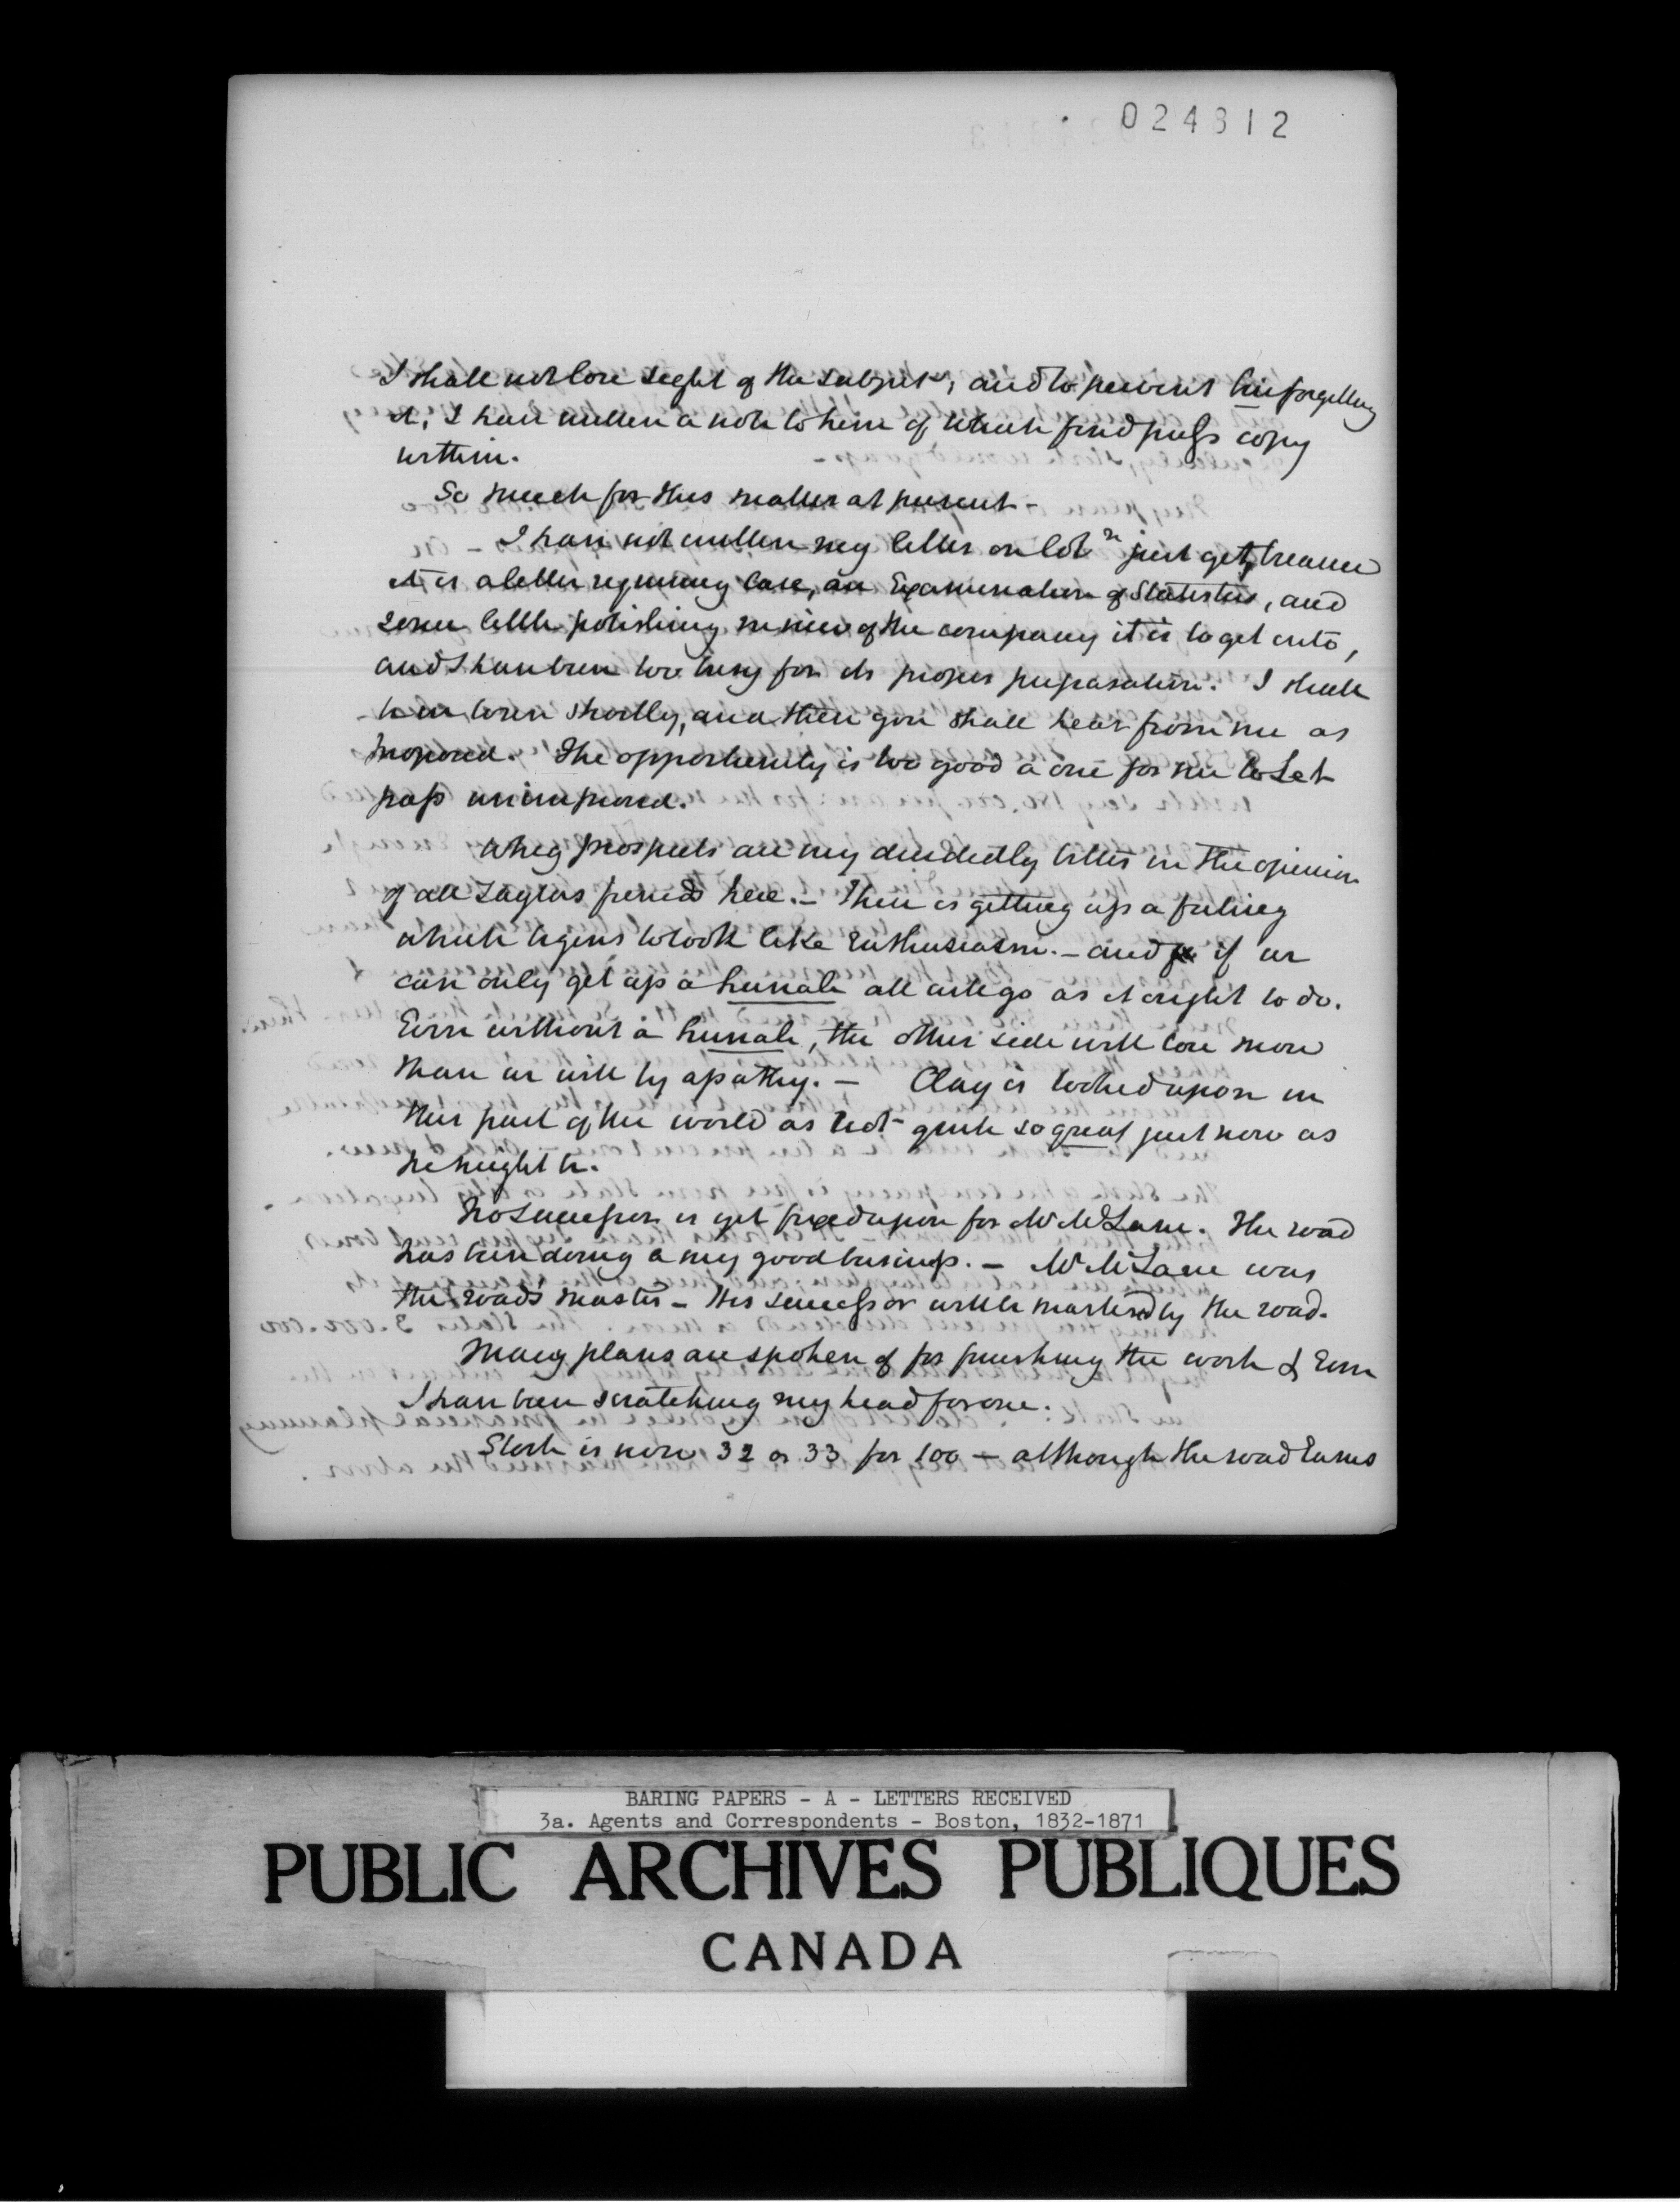 024312
I shall not lose sight of the subject, and to prevent his forgetting
it, I have written a note to him of which find press copy
within.
So much for this matter at present -
I have not written my letter on Cotn just yet, because
it is a letter requiring care, an Examination of Statistics, and
some little polishing in view of the company it is to get into,
and I have been too busy for its proper preparation. I shall
be in town shortly, and then you shall hear from me as
proposed. The opportunity is too good a one for me to let
pass unimproved.
Whig prospects are very decidedly better in the opinion
of all Taylors friends here. - There is getting up a feeling
which begins to look like Enthusiasm. - and if we
can only get up a hurrah all will go as it ought to do.
Even without a hurrah, the other side will lose more
than we will by apathy. - Clay is looked upon in
this part of the world as not quite so great just now as
he might be.
No successor is yet fixed upon for Mr McLane. The road
has been doing a very good business. - Mr McLane was
the roads master - His successor will be mastered by the road.
Many plans are spoken of for finishing the work & Even
I have been scratching my head for one.
Stock is now 32 or 33 for 100 - although the road Earns
BARING PAPERS - A - LETTERS RECEIVED
3a. Agents and Correspondents - Boston, 1832-1871
PUBLIC ARCHIVES PUBLIQUES
CANADA